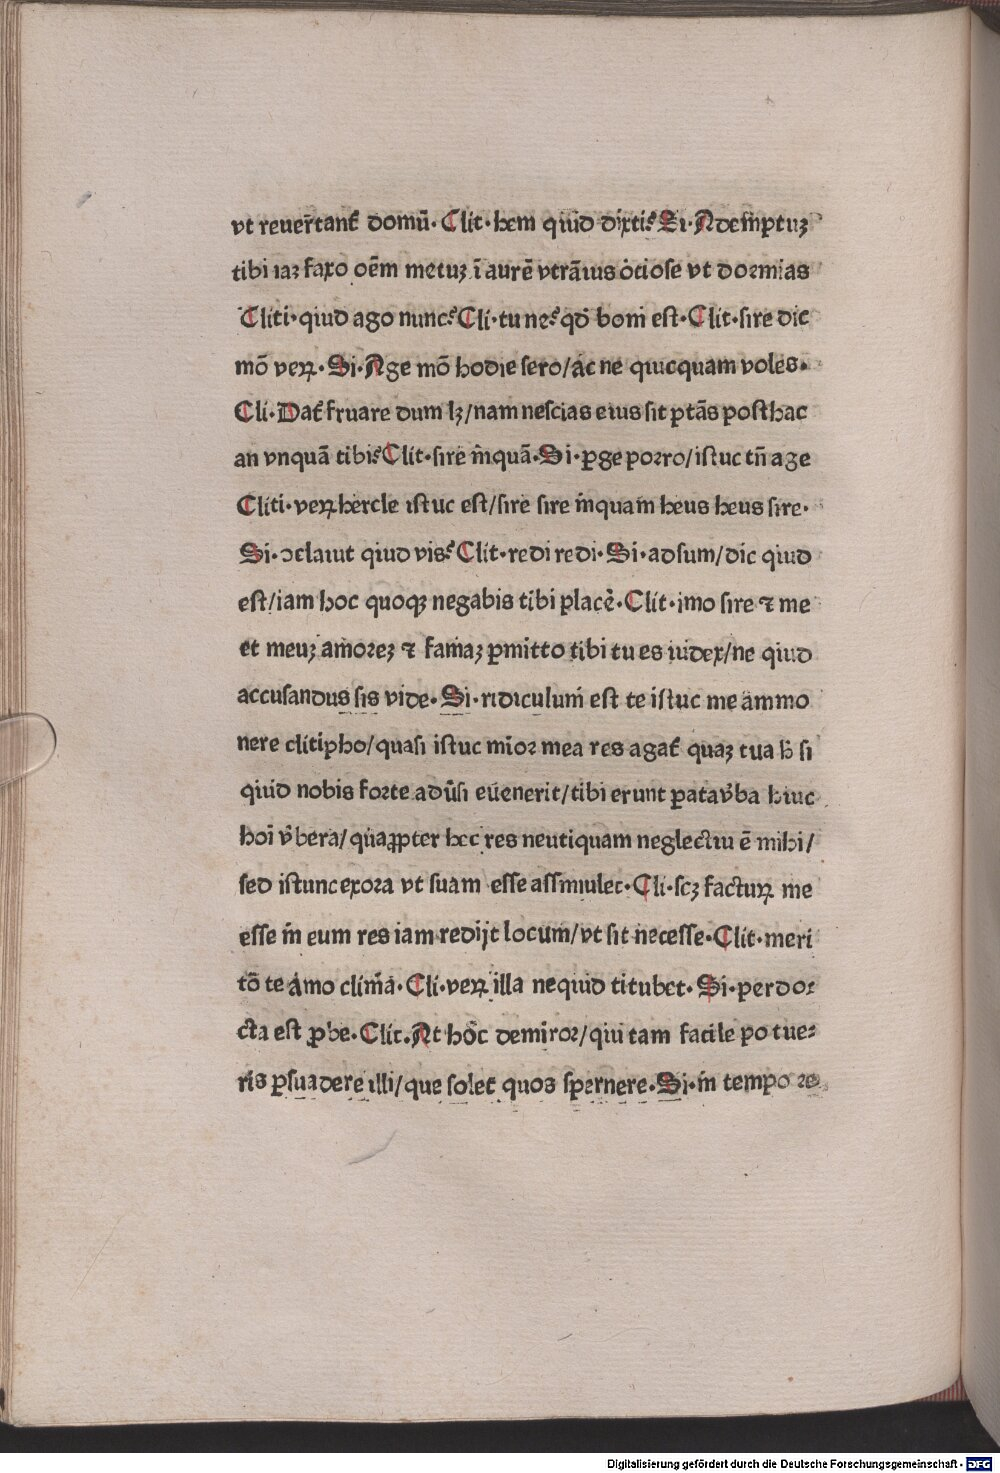 vt reuer̄tant᷑ domū· Clit· hem quid dixti? Si· Ademptuꝫ
tibi iaꝫ faxo oēm metuꝫ ī aurē vtrāuis ociose vt dormias
Cliti· quid ago nunc? Cli· tu ne? qd̓ boni est· Clit· sire dic
mō veꝝ· Si· Age mō hodie sero/ ac ne quicquam voles·
Cli· Dat᷑ fruare dum lꝫ/ nam nescias eius sit ptās posthac
an vnquā tibi? Clit· sire m̄quā· Si· ꝑge porro/ istuc tn̄ age
Cliti· veꝝ hercle istuc est/ sire sire m̄quam heus heus sire·
Si· ↄclaiut quid vis? Clit· redi redi· Si· adsum/ dic quid
est/ iam hoc quoqꝫ negabis tibi placē· Clit· imo sire ⁊ me
et meuꝫ amoreꝫ ⁊ famaꝫ ꝑmitto tibi tu es iudex/ ne quid
accusandus sis vide· Si· ridiculum est te istuc me ammo
nere clitipho/ quasi istuc mior mea res agat᷑ quaꝫ tua h̄ si
quid nobis forte adūsi euenerit/ tibi erunt ꝑata v̄ba huic
hoī v̄bera/ quaꝓpter hec res neutiquam neglectu ē mihi/
sed istunc exora vt suam esse assimulet· Cli· scꝫ facturꝝ me
esse m̄ eum res iam redijt locum/ vt sit necesse· Clit· meri
tō te amo clim̄a· Cli· veꝝ illa nequid titubet· Si· perdo⸗
cta est ꝓbe· Clit· At hōc demiror/ qui tam facile potue⸗
ris ꝑsuadere illi/ que solet quos spernere· Si· in tempore